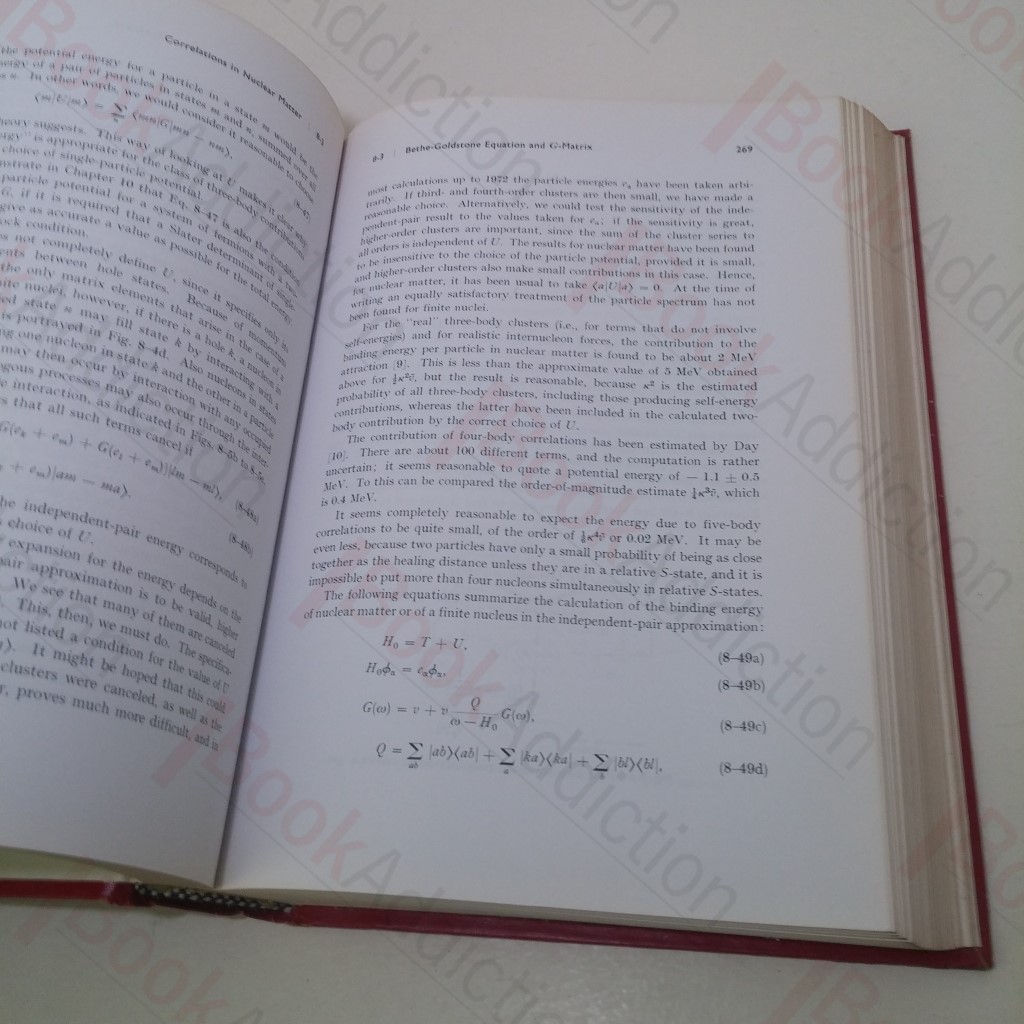 Correlations in Nuclear Matter | 8-3
the potential energy for a particle in a state m would be the
energy of a pair of particles in states m and n, summed over all
n. In other words, we would consider it reasonable to choose
⟨m|U|m⟩ = ∑ₙ ⟨mn|G|mn − nm⟩.
(8–47)
theory suggests. This way of looking at U makes it clear why
is appropriate for the class of three-body contributions
choice of single-particle potential
in Chapter 10 that Eq. 8–47 is also the condition
particle potential for a system of fermions with a two-
G, if it is required that a Slater determinant of single-
give as accurate a value as possible for the total energy
condition.
not completely define U, since it specifies only its
between hole states. Because of momentum
the only matrix elements that arise in the case of a
nuclei, however, if there is a hole k, a nucleon in
state n may fill state k by interacting with a
is portrayed in Fig. 8–4d. Also nucleons in states
one nucleon in state k and the other in a particle
may then occur by interaction with any occupied
processes may also occur through the inter-
interaction, as indicated in Figs. 8–5b to 8–5e.
that all such terms cancel if
G(eₖ + eₘ) + G(eₗ + eₘ)|lm − ml⟩,
(8–48a)
+ eₘ)|am − ma⟩.
(8–48b)
the independent-pair energy corresponds to
choice of U.
expansion for the energy depends on the
pair approximation is to be valid, higher
We see that many of them are canceled
This, then, we must do. The specifica-
not listed a condition for the value of U
It might be hoped that this could
clusters were canceled, as well as the
proves much more difficult, and in
8-3 | Bethe-Goldstone Equation and G-Matrix 269
most calculations up to 1972 the particle energies eₐ have been taken arbi-
trarily. If third- and fourth-order clusters are then small, we have made a
reasonable choice. Alternatively, we could test the sensitivity of the inde-
pendent-pair result to the values taken for eₐ; if the sensitivity is great,
higher-order clusters are important, since the sum of the cluster series to
all orders is independent of U. The results for nuclear matter have been found
to be insensitive to the choice of the particle potential, provided it is small,
and higher-order clusters also make small contributions in this case. Hence,
for nuclear matter, it has been usual to take ⟨a|U|a⟩ = 0. At the time of
writing an equally satisfactory treatment of the particle spectrum has not
been found for finite nuclei.
For the "real" three-body clusters (i.e., for terms that do not involve
self-energies) and for realistic internucleon forces, the contribution to the
binding energy per particle in nuclear matter is found to be about 2 MeV
attraction [9]. This is less than the approximate value of 5 MeV obtained
above for ½κ²v̄, but the result is reasonable, because κ² is the estimated
probability of all three-body clusters, including those producing self-energy
contributions, whereas the latter have been included in the calculated two-
body contribution by the correct choice of U.
The contribution of four-body correlations has been estimated by Day
[10]. There are about 100 different terms, and the computation is rather
uncertain; it seems reasonable to quote a potential energy of − 1.1 ± 0.5
MeV. To this can be compared the order-of-magnitude estimate ½κ³v̄, which
is 0.4 MeV.
It seems completely reasonable to expect the energy due to five-body
correlations to be quite small, of the order of ½κ⁴v̄ or 0.02 MeV. It may be
even less, because two particles have only a small probability of being as close
together as the healing distance unless they are in a relative S-state, and it is
impossible to put more than four nucleons simultaneously in relative S-states.
The following equations summarize the calculation of the binding energy
of nuclear matter or of a finite nucleus in the independent-pair approximation:
H₀ = T + U, (8–49a)
H₀ϕα = eαϕα, (8–49b)
G(ω) = v + v Q/(ω − H₀) G(ω), (8–49c)
Q = ∑ab |ab⟩⟨ab| + ∑a |ka⟩⟨ka| + ∑b |bl⟩⟨bl|. (8–49d)
BookAddiction